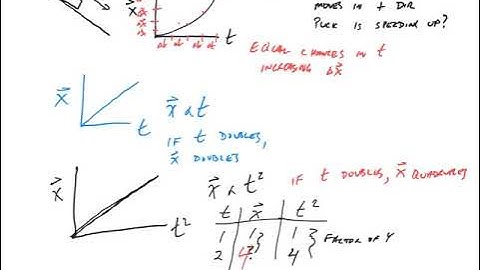 MOVES IN + DIR
PUCK IS SPEEDING UP?
x⃗
Δt Δt Δt Δt
t
EQUAL CHANGES IN t
INCREASING Δx⃗
x⃗
t
x⃗ α t
IF t DOUBLES,
x⃗ DOUBLES
x⃗
t²
x⃗ α t²
IF t DOUBLES, x⃗ QUADRUPLES
t x⃗ t²
1 1 1
2 4 ? 4
FACTOR OF 4